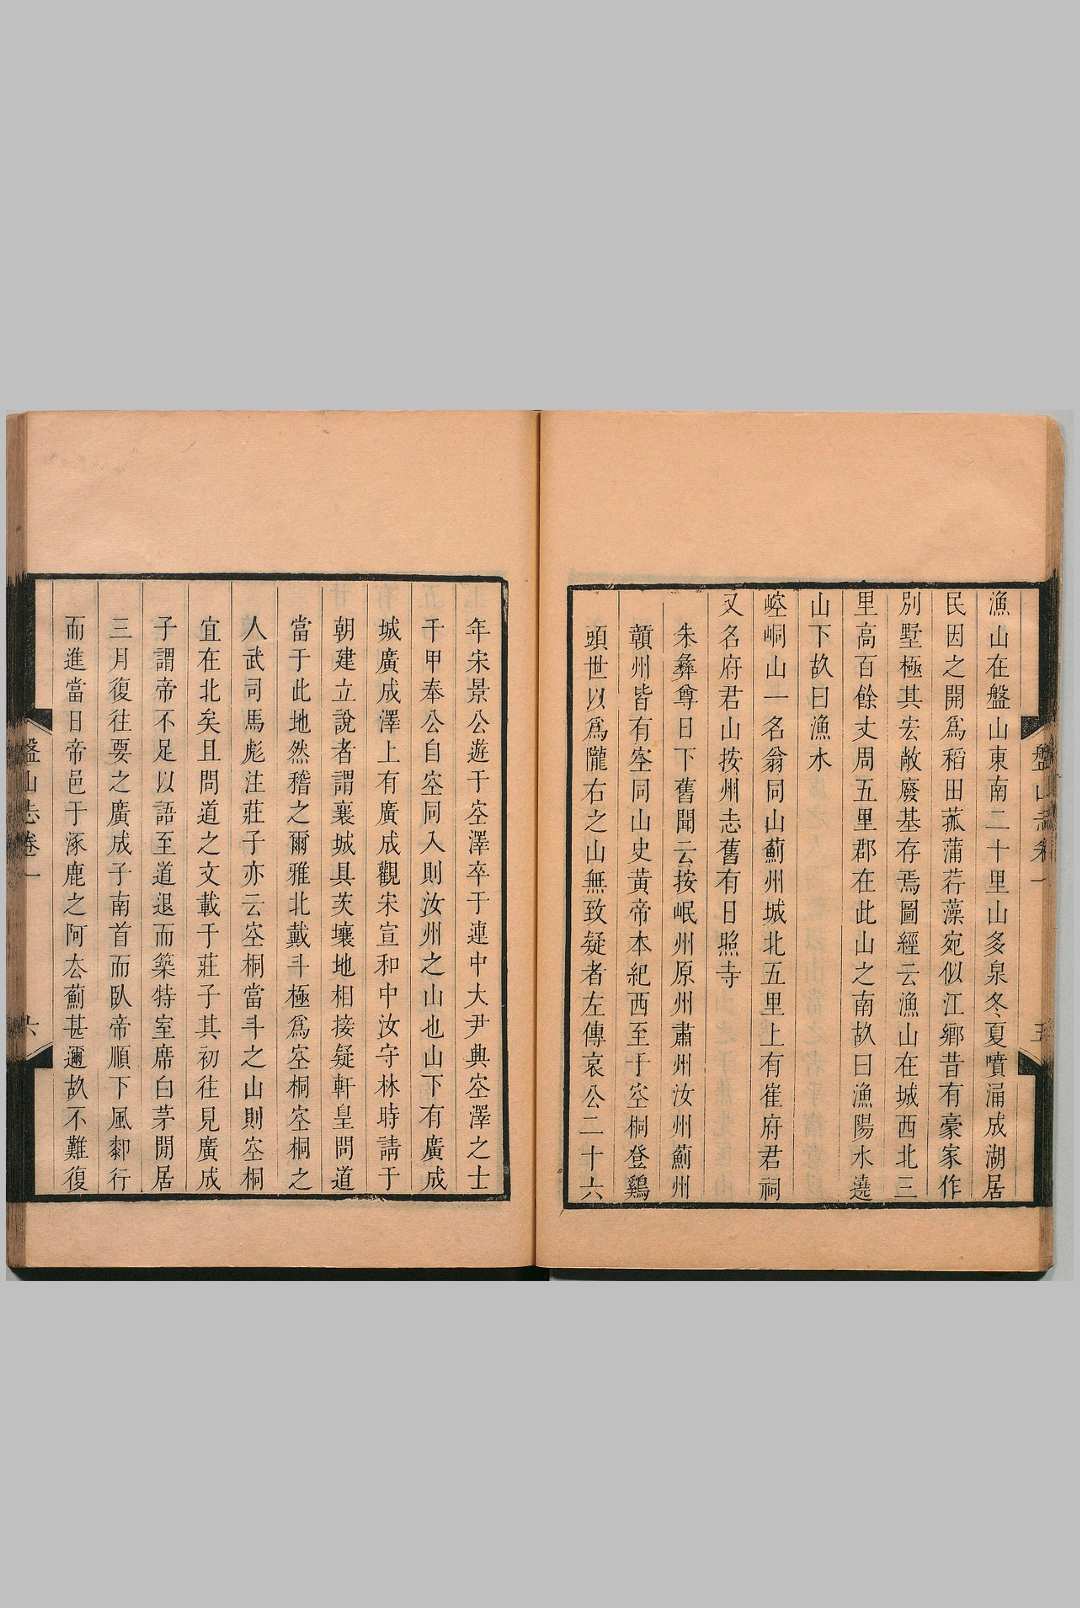 漁山在盤山東南二十里山多泉冬夏噴涌成湖居
民因之開爲稻田菰蒲荇藻宛似江鄉昔有豪家作
別墅極其宏敞廢基存焉圖經云漁山在城西北三
里高百餘丈周五里郡在此山之南故曰漁陽水遶
山下故曰漁水
崆峒山一名翁同山薊州城北五里上有崔府君祠
又名府君山按州志舊有日照寺
朱彝尊日下舊聞云按岷州原州肅州汝州薊州
贛州皆有空同山史黃帝本紀西至于空桐登鷄
頭世以爲隴右之山無致疑者左傳哀公二十六
盤山志卷一
五
年宋景公遊于空澤卒于連中大尹典空澤之士
千甲奉公自空同入則汝州之山也山下有廣成
城廣成澤上有廣成觀宋宣和中汝守林時請于
朝建立說者謂襄城具茨壤地相接疑軒皇問道
當于此地然稽之爾雅北戴斗極爲空桐空桐之
人武司馬彪注莊子亦云空桐當斗之山則空桐
宜在北矣且問道之文載于莊子其初往見廣成
子謂帝不足以語至道退而築特室席白茅閒居
三月復往要之廣成子南首而臥帝順下風郀行
而進當日帝邑于涿鹿之阿去薊甚邇故不難復
盤山志卷一
六